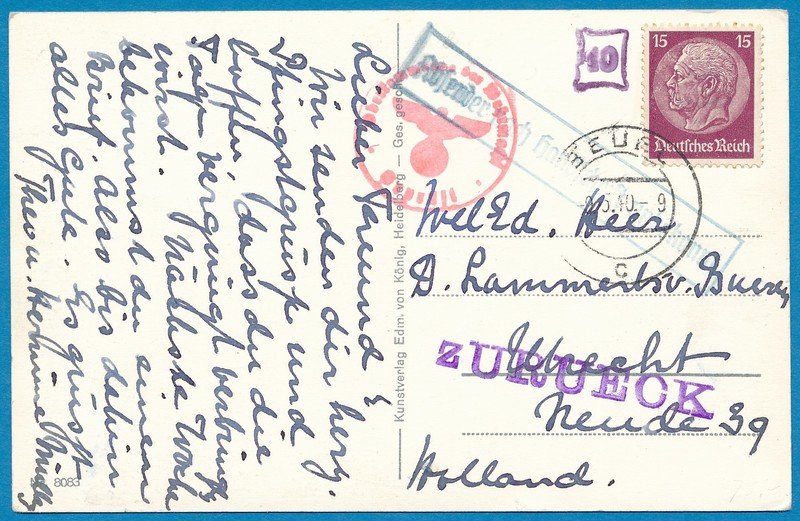 Lieber Freund
Wir senden dir herz.
Pfingstgrüße und
hoffen dass du die
Tage vergnügt verbringst
wirst. Nächste Woche
bekommst du einen
Brief. Also bis dahin
alles Gute. Es grüsst
Theo u. Hermine
N 8083
Kunstverlag Edm. von König, Heidelberg — Ges. gesch.
10
15 15
Deutsches Reich
.40.- 9
c
Wel Ed. Heer
D. Lammerts v. Bueren
Utrecht
ZURUECK
Neude 39
Holland.